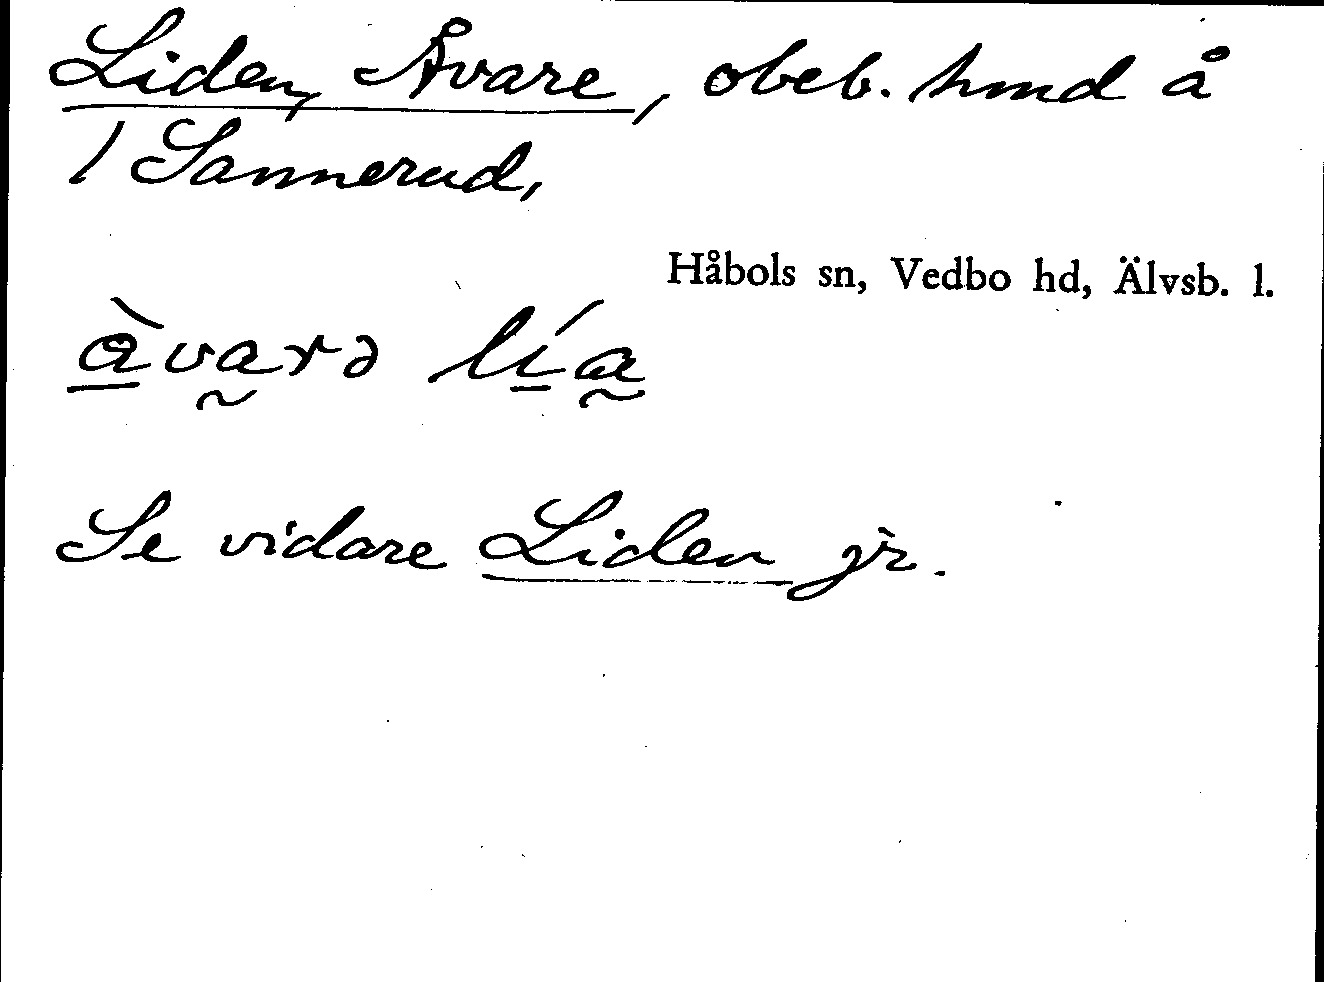 Liden, Åvare, obeb. hmd å
1 Sannerud,
Håbols sn, Vedbo hd, Älvsb. l.
àvarə lía
Se vidare Liden jr.